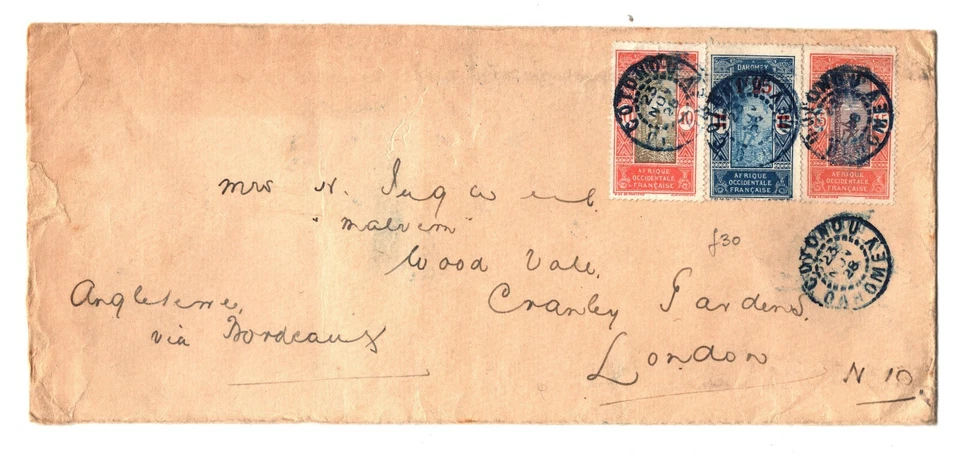 DAHOMEY
AFRIQUE
OCCIDENTALE
FRANÇAISE
10
AFRIQUE
OCCIDENTALE
FRANÇAISE
AFRIQUE
OCCIDENTALE
FRANÇAISE
COTONOU
23 NOV 28
COTONOU DAHOMEY
Mrs N.
"Malvern"
Wood Vale,
Cranley Gardens,
London
N 10.
Angleterre,
via Bordeaux
f30